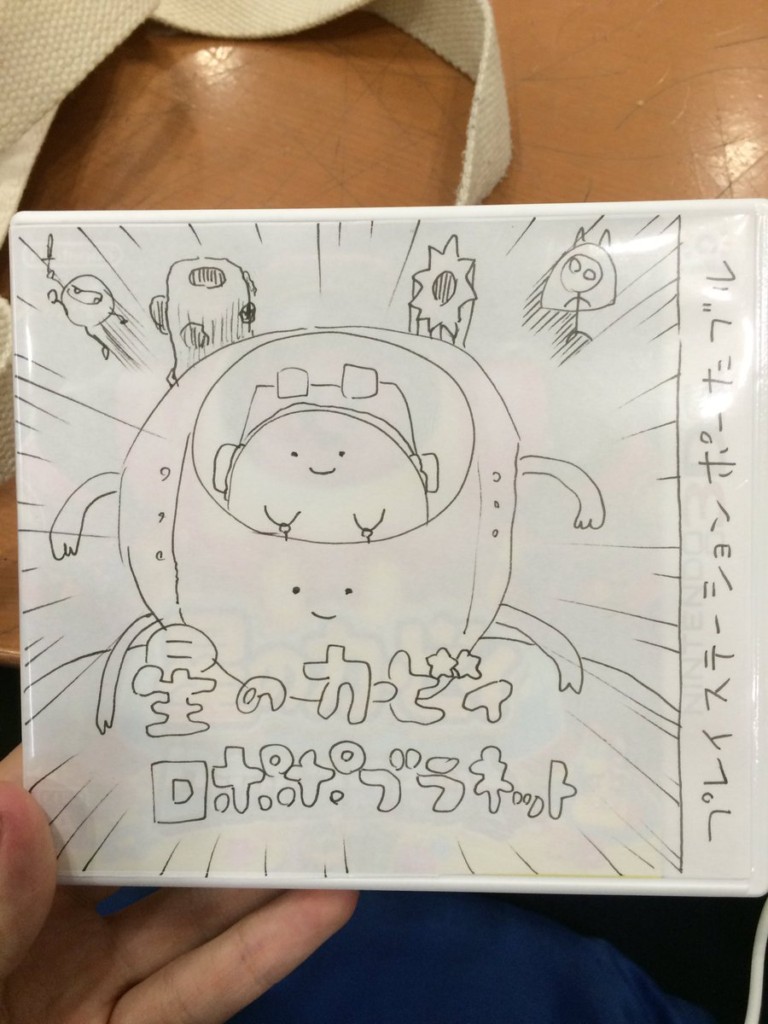 星のカービィ
ロボボプラネット
プレイステーションポータブル
NINTENDO 3